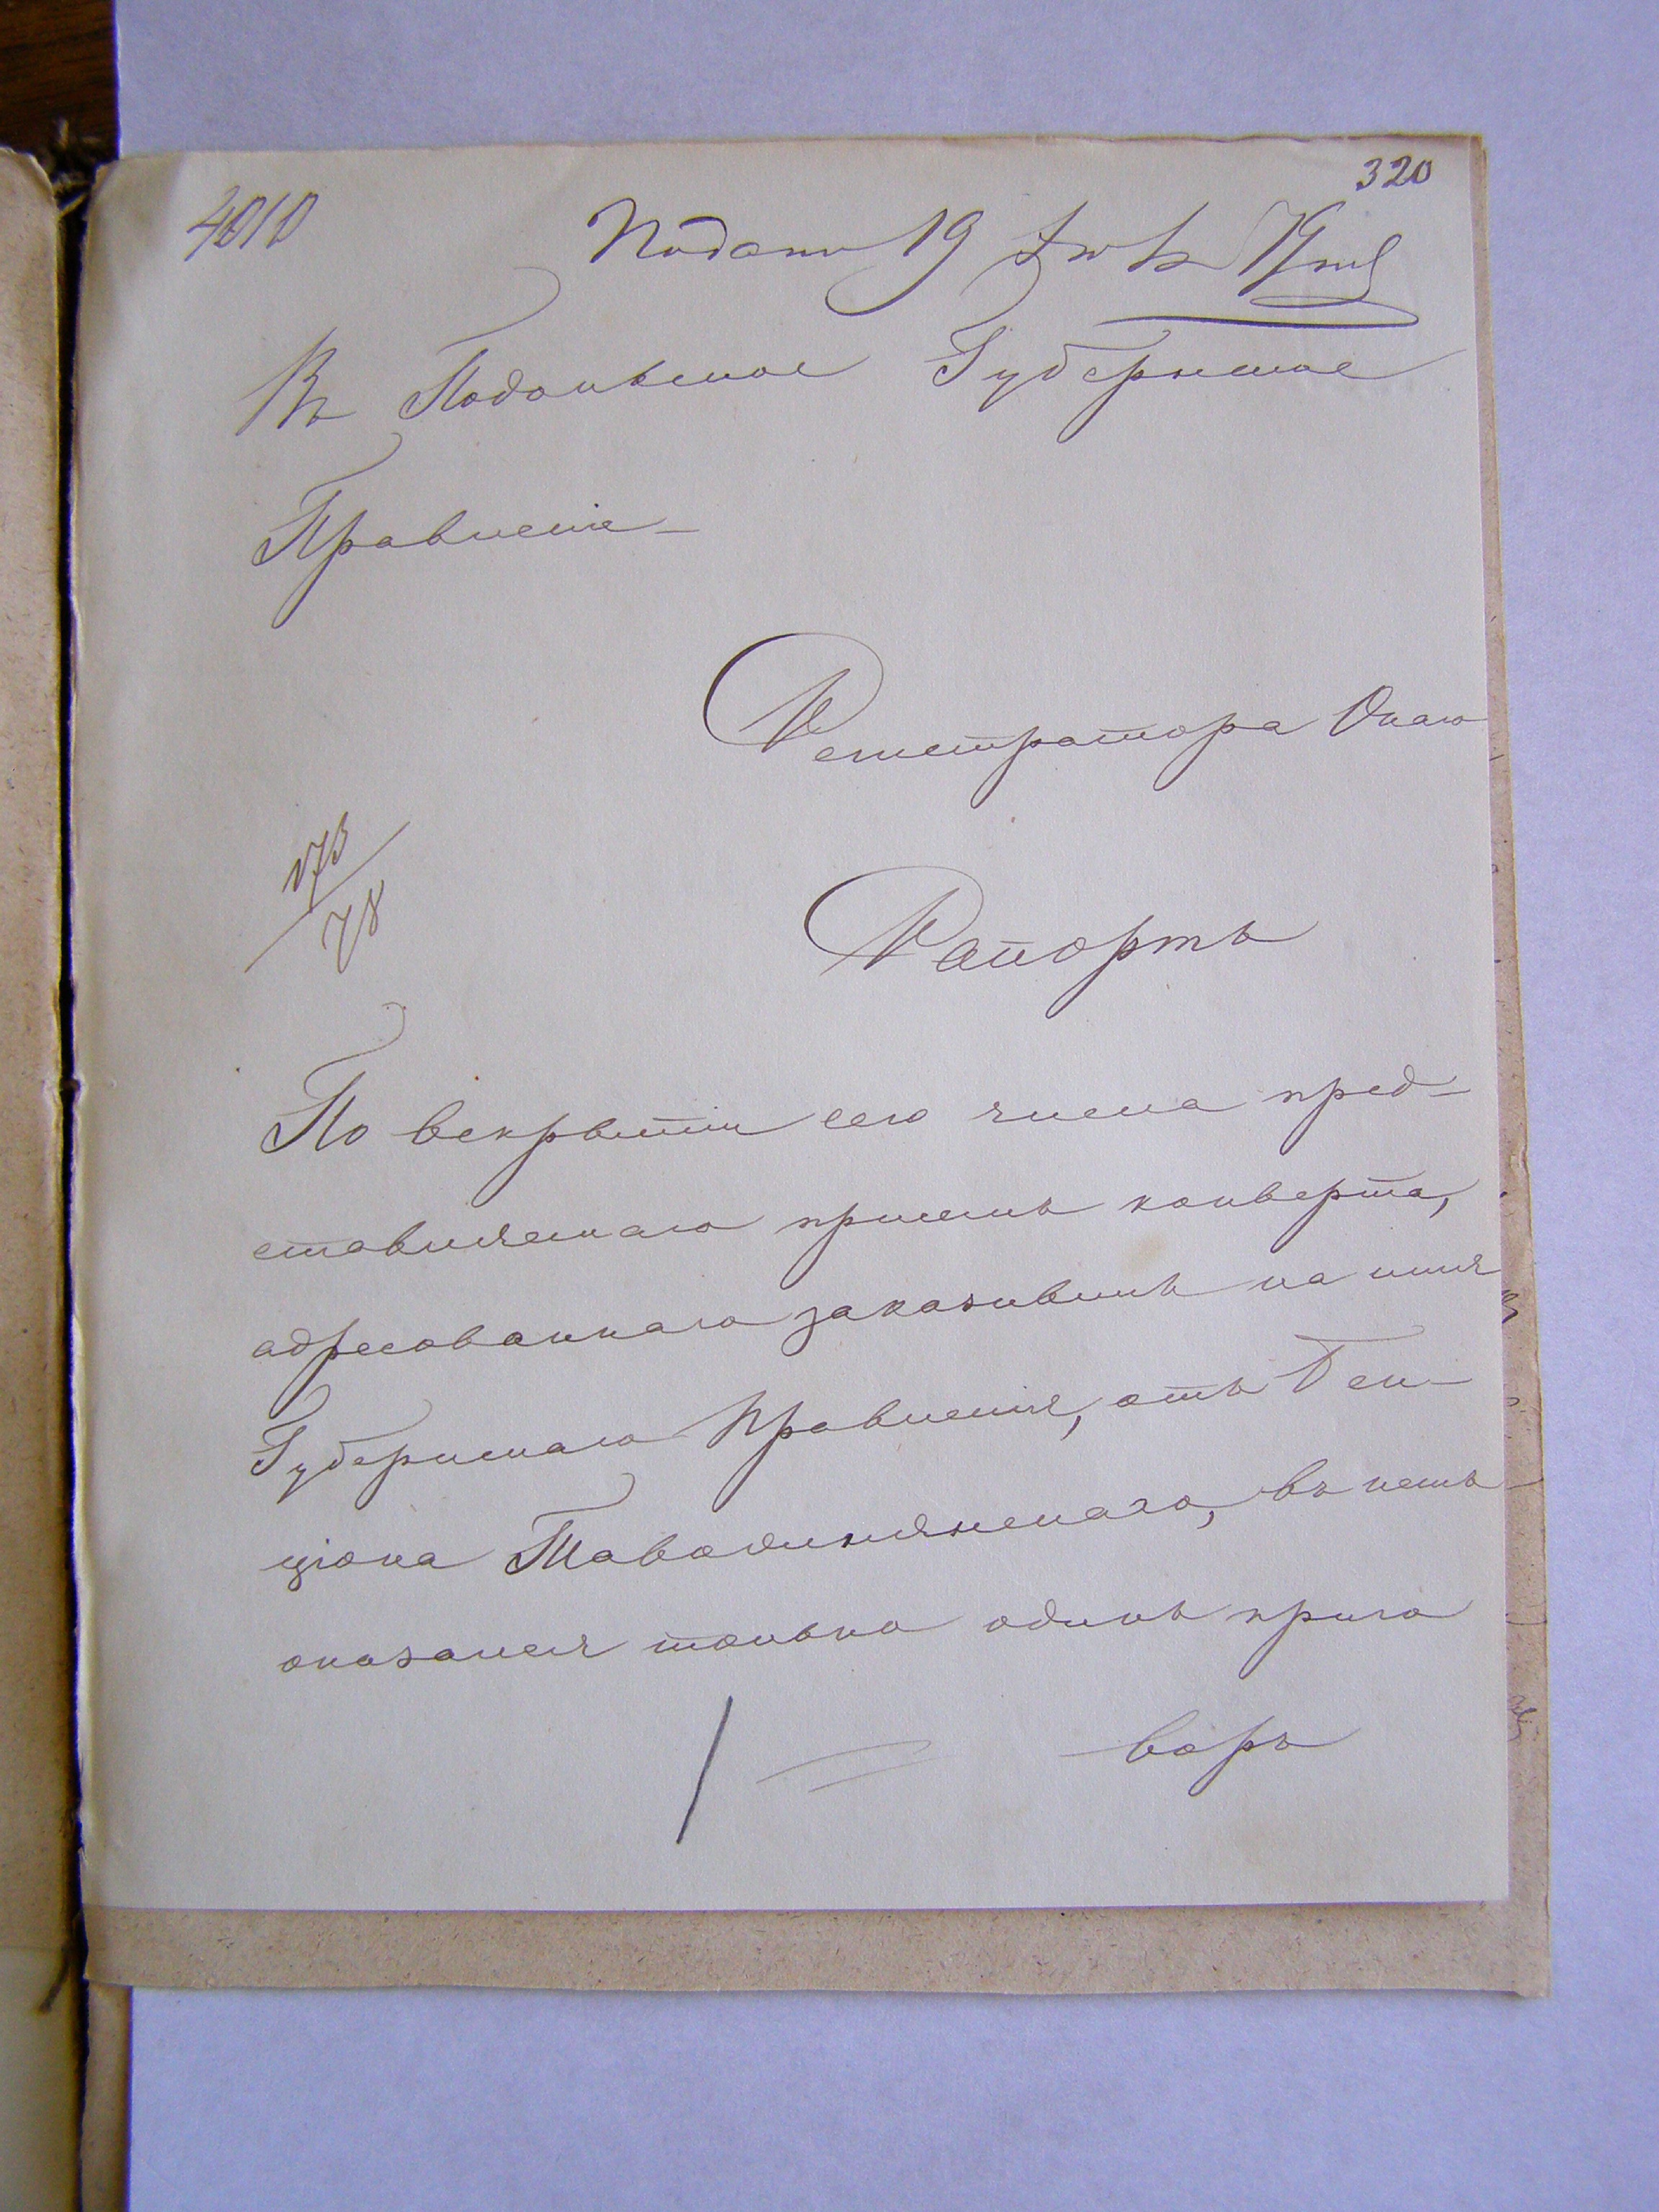 320
4010
Подано 19 Янв 79 год
Въ Подольское Губернское
Правленіе
Регистратора Онаго
173/78
Рапортъ
По вскрытіи сего числа пред-
ставляемаго присемъ конверта,
адресованнаго заказнымъ на имя
Губернскаго Правленія, отъ Бен-
ціона
въ немъ
оказался только одинъ приго
воръ